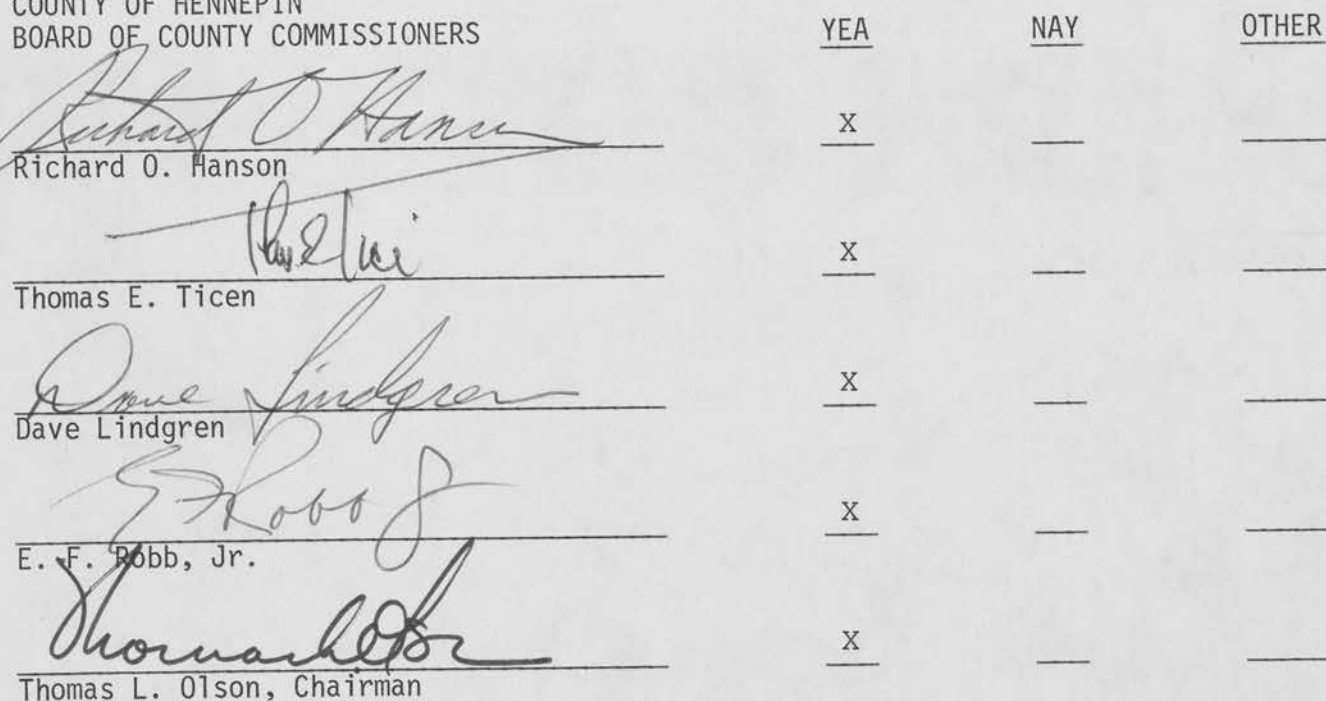 COUNTY OF HENNEPIN
BOARD OF COUNTY COMMISSIONERS YEA NAY OTHER
Richard O Hanson X
Richard O. Hanson
X
Thomas E. Ticen
Dave Lindgren X
Dave Lindgren
E F Robb Jr X
E. F. Robb, Jr.
Thomas L Olson X
Thomas L. Olson, Chairman